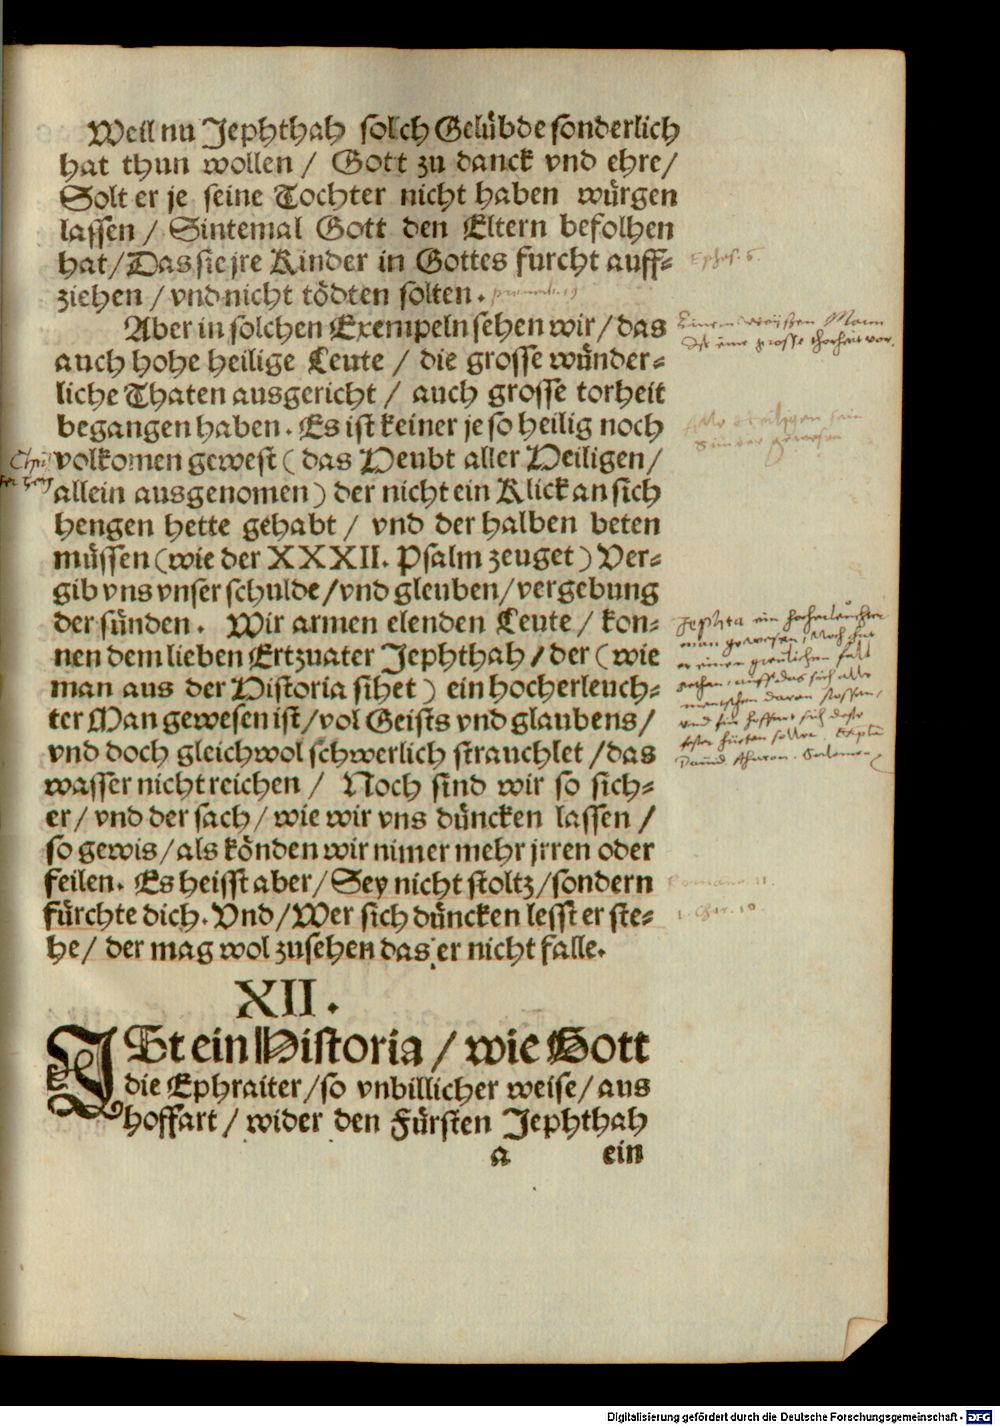 Weil nu Jephthah solch Gelübde sonderlich
hat thun wollen / Gott zu danck vnd ehre/
Solt er je seine Tochter nicht haben würgen
lassen / Sintemal Gott den Eltern befolhen
hat/Das sie jre Kinder in Gottes furcht auff-
ziehen / vnd nicht tödten solten.
Ephes. 6.
Aber in solchen Exempeln sehen wir/das
auch hohe heilige Leute / die grosse wünder-
liche Thaten ausgericht / auch grosse torheit
begangen haben. Es ist keiner je so heilig noch
volkomen gewest ( das Heubt aller Heiligen/
allein ausgenomen ) der nicht ein Klick an sich
hengen hette gehabt / vnd der halben beten
müssen (wie der XXXII. Psalm zeuget ) Ver-
gib vns vnser schulde/vnd gleuben/vergebung
der sünden. Wir armen elenden Leute / kon-
nen dem lieben Ertzuater Jephthah / der (wie
man aus der Historia sihet ) ein hocherleuch-
ter Man gewesen ist/vol Geists vnd glaubens/
vnd doch gleichwol schwerlich strauchlet /das
wasser nicht reichen / Noch sind wir so sich-
er/ vnd der sach/ wie wir vns düncken lassen /
so gewis/als könden wir nimer mehr jrren oder
feilen. Es heisst aber/ Sey nicht stoltz/sondern
fürchte dich. Vnd/Wer sich düncken lesst er ste-
he/ der mag wol zusehen das er nicht falle.
Einem weyssen Mann
Ist eine grosse thorheit vor.
Alle Heiligen sein
Sünder gewesen
Jephta ein hocherleuchter
man gewesen, Noch
Romano. 11.
1. Chor. 10
XII.
JSt ein Historia / wie Gott
die Ephraiter/so vnbillicher weise/ aus
hoffart / wider den Fürsten Jephthah
a ein
Digitalisierung gefördert durch die Deutsche Forschungsgemeinschaft - DFG